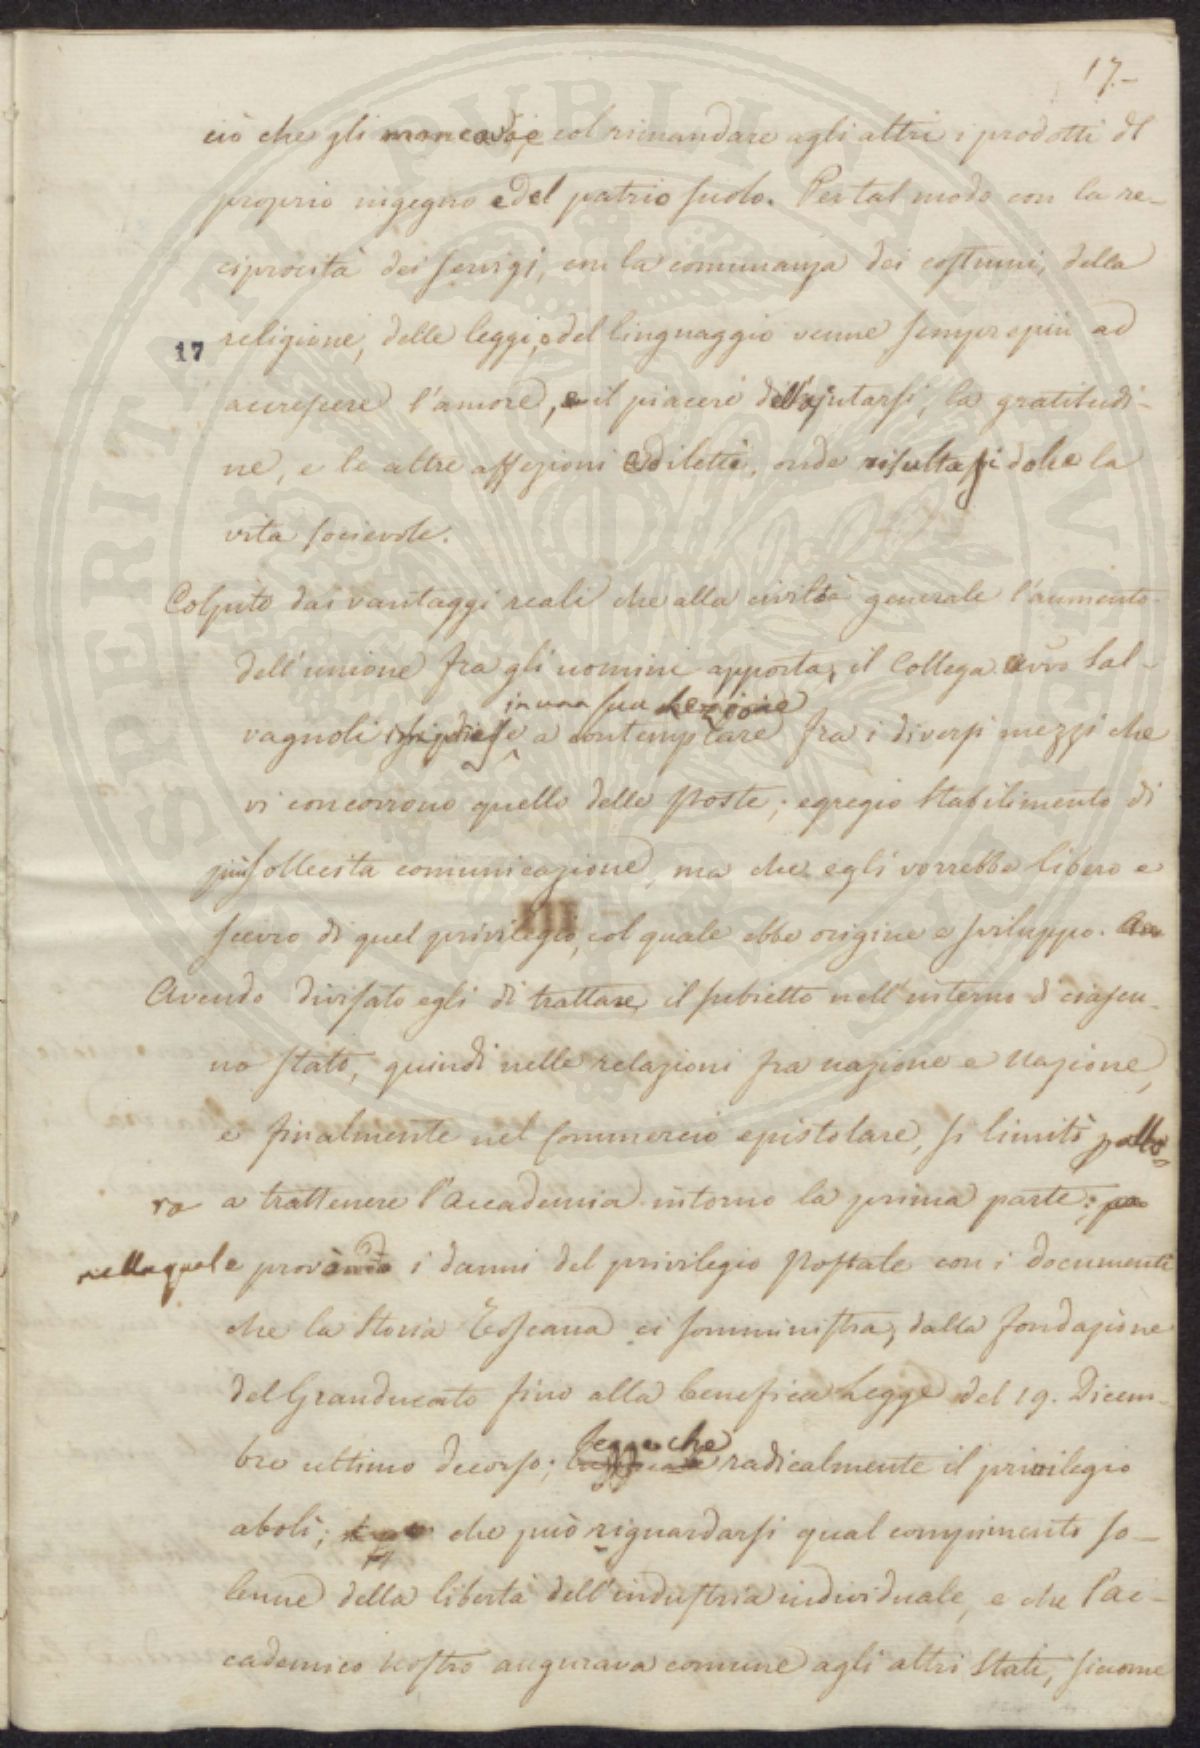 17.-
ciò che gli mancava, col rimandare agli altri i prodotti del
proprio ingegno e del patrio suolo. Per tal modo con la re-
ciprocità dei servigi, con la comunanza dei costumi, della
religione, delle leggi, e del linguaggio venne sempre più ad
17
accrescere l'amore, e il piacere dell'ajutarsi, la gratitudi-
ne, e le altre affezioni e diletti, onde risultasi dolce la
vita socievole.
Colpito dai vantaggi reali che alla civiltà generale l'aumento
dell'unione fra gli uomini apporta, il Collega Avvo Sal-
in una sua Lezione
vagnoli si diese a contemplare fra i diversi mezzi che
vi concorrono quello delle Poste; egregio Stabilimento di
più sollecita comunicazione, ma che egli vorrebbe libero e
scevro di quel privilegio, col quale ebbe origine e sviluppo.
Avendo divisato egli di trattare il subietto nell'interno di ciascu-
no stato, quindi nelle relazioni fra nazione e Nazione,
e finalmente nel commercio epistolare, si limitò p. allo-
ra a trattenere l'Accademia intorno la prima parte:
nella quale provò i danni del privilegio Postale con i documenti
che la Storia Toscana ci somministra, dalla fondazione
del Granducato fino alla benefica Legge del 19. Dicem-
legge che
bre ultimo decorso; radicalmente il privilegio
abolì; che può riguardarsi qual compimento so-
lenne della libertà dell'industria individuale, e che l'ac-
cademico Nostro augurava comune agli altri Stati, siccome
SPERITATI PUBLICAE AUGENDAE